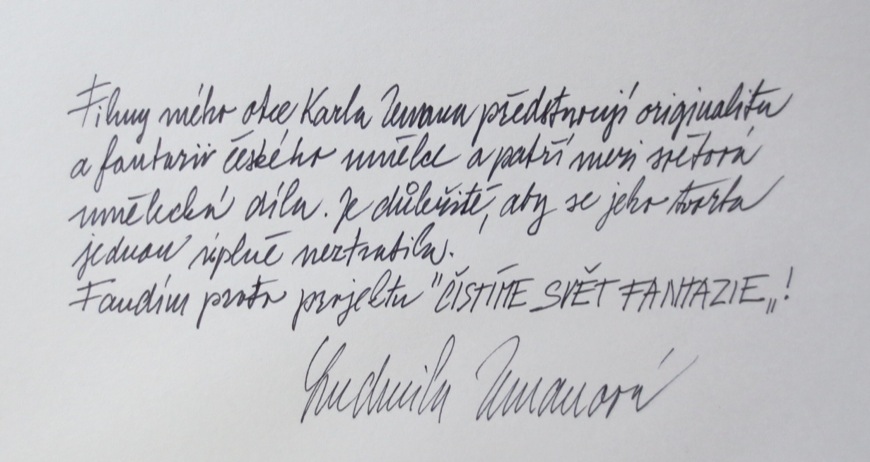 Filmy mého otce Karla Zemana představují originalitu
a fantazii českého umělce a patří mezi světová
umělecká díla. Je důležité, aby se jeho tvorba
jednou úplně neztratila.
Fandím proto projektu "ČISTÍME SVĚT FANTAZIE„!
Ludmila Zemanová